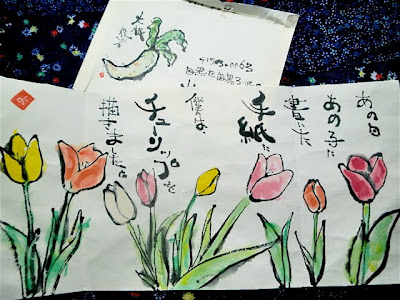 あの日
あの子に
書いた
手紙に
僕は
チューリップを
描きました。
〒153-0063
目黒区目黒3